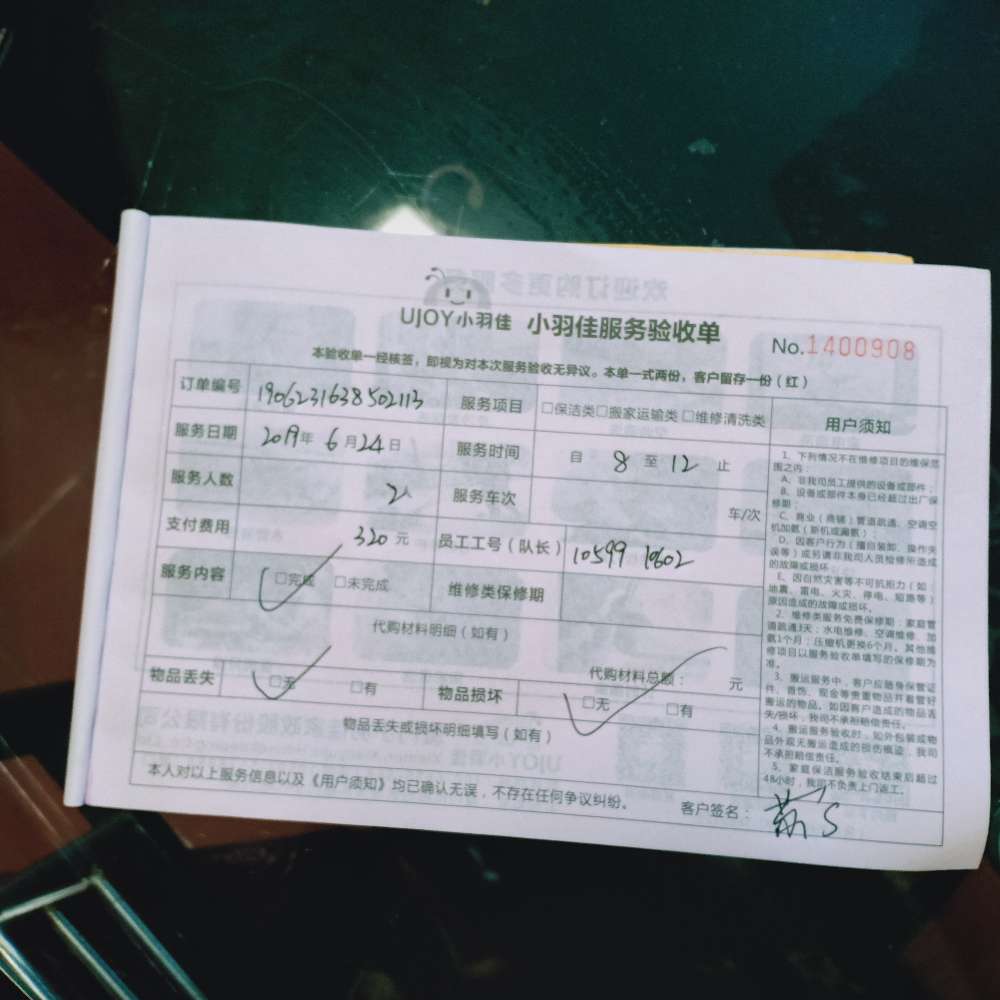 UJOY小羽佳 小羽佳服务验收单
No.1400908
本验收单一经核签，即视为对本次服务验收无异议。本单一式两份，客户留存一份（红）
订单编号 1906231638502113 服务项目 □保洁类□搬家运输类□维修清洗类
服务日期 2019年 6月24日 服务时间 自 8 至 12 止
服务人数 2人 服务车次 车/次
支付费用 320元 员工工号（队长） 10599 10602
服务内容 □完成 □未完成 维修类保修期
代购材料明细（如有）
代购材料总额： 元
物品丢失 □无 □有 物品损坏 □无 □有
物品丢失或损坏明细填写（如有）
本人对以上服务信息以及《用户须知》均已确认无误，不存在任何争议纠纷。 客户签名：
用户须知
1、下列情况不在维修项目的维保范
围之内：
A、非我司员工提供的设备或部件；
B、设备或部件本身已经超过出厂保
修期；
C、商业（商铺）管道疏通、空调空
机加氨（新机或漏氨）；
D、因客户行为（擅自装卸、操作失
误等）或另请非我司人员检修所造成
的故障或损坏
E、因自然灾害等不可抗拒力（如：
地震、雷电、火灾、停电、短路等）
原因造成的故障或损坏。
2、维修类服务免费保修期：家庭管
道疏通3天；水电维修、空调维修、加
氨1个月；压缩机更换6个月。其他维
修项目以服务验收单填写的保修期为
准。
3、搬运服务中，客户应随身保管证
件、首饰、现金等贵重物品并看管好
搬运的物品。如因客户造成的物品丢
失/损坏，我司不承担赔偿责任。
4、搬运服务验收时，如外包装或物
品外观无搬运造成的损伤痕迹，我司
不承担赔偿责任。
5、家庭保洁服务验收结束后超过
48小时，我司不负责上门返工。